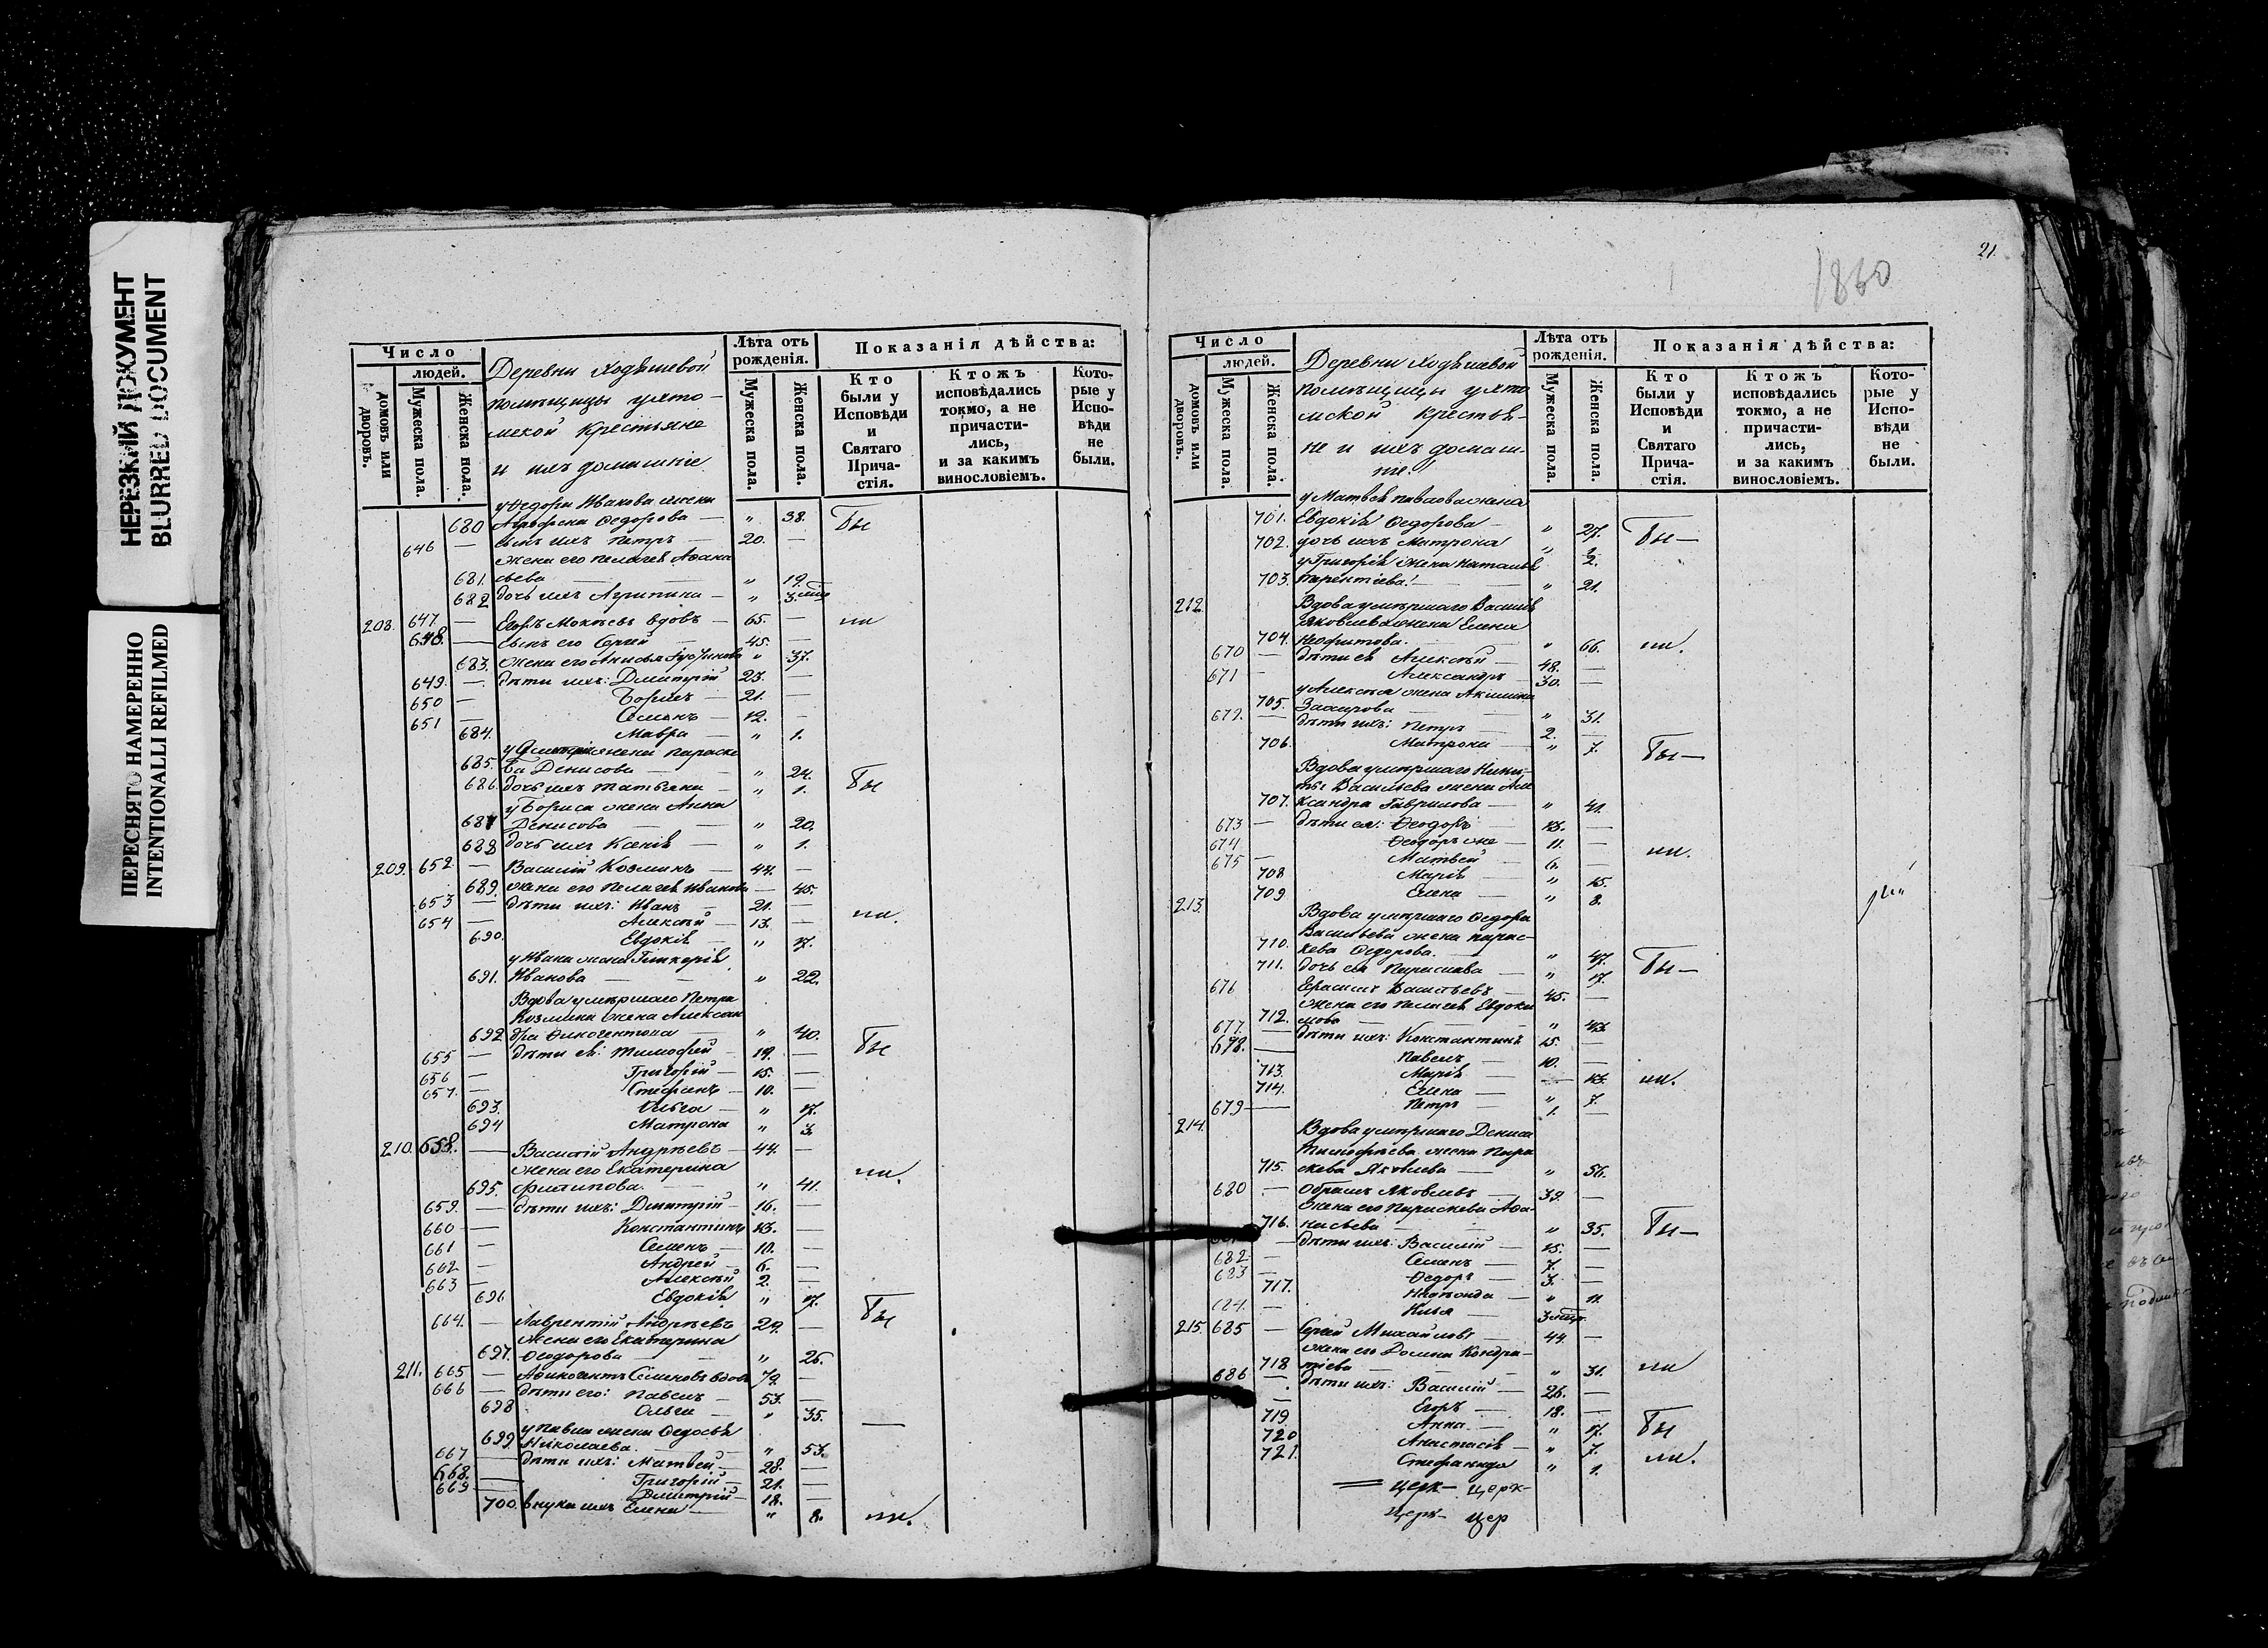 НЕРЕЗКИЙ ДОКУМЕНТ
BLURRED DOCUMENT
ПЕРЕСНЯТО НАМЕРЕННО
INTENTIONALLI REFILMED
Число
людей.
домовъ или дворовъ.
Мужеска пола.
Женска пола.
Деревни Ходѣшевой
помѣщицы
крестьяне
и ихъ домашніе
Лѣта отъ рожденія.
Мужеска пола.
Женска пола.
Показанія дѣйства:
Кто были у Исповѣди и Святаго Прича-стія.
Ктожъ исповѣдались токмо, а не причасти-лись, и за какимъ винословіемъ.
Кото-рые у Испо-вѣди не были.
у Ѳедора Иванова жена
680 Ѳедорова — " 38. Бы
646 — сынъ ихъ Петръ — 20. —
жена его Пелагея Аѳана
681. сьева — " 19.
682 дочь ихъ Агрипина — " 3.
208. 647. — Егоръ вдовъ — 65. — ли
648. — сынъ его Сергей — 45. —
683. жена его Анисья " 37.
649. — дѣти ихъ: Дмитрій 23. —
650 — Борисъ — 21. —
651 — Семенъ — 12. —
684. Мавра — " 1.
у Дмитрія жена Параске
685. ва Денисова — " 24.
686. дочь ихъ Татьяна — " 1. Бы
у Бориса жена Анна
687 Денисова — " 20.
688 дочь ихъ Ксенія — " 1.
209. 652. — Василій Козминъ — 44. —
689. жена его Пелагея Иванова — 45.
653 — дѣти ихъ: Иванъ — 21. —
654 — Алексѣй — 13. — ли.
690. Евдокія — " 17.
у Ивана жена Гликерія
691. Иванова — " 22.
Вдова умершаго Петра
Козмина жена Алексан
692 дра — " 40.
655 — дѣти ея: Тимофей — 19. — Бы
656 — Григорій — 15. —
657. — Стефанъ — 10. —
693. Ольга — " 17.
694 Матрона " 3.
210. 658. — Василій Андрѣевъ — 44. —
жена его Екатерина ли.
695. Филипова. — " 41.
659. — дѣти ихъ: Дмитрій — 16. —
660 — Константинъ 13. —
661 — Семенъ — 10. —
662 — Андрей — 6. —
663 — Алексѣй 2. —
696 Евдокія " 17.
664. — Лаврентій Андрѣевъ 29. — Бы
жена его Екатерина
697. Ѳеодорова — " 26.
211. 665 — Семеновъ вдовъ 79. —
666 — дѣти его: Павелъ — 53. —
698 Ольга — " 35. —
у Павла жена Ѳедосья
699 Николаева. — " 53.
667 — дѣти ихъ: Матвей — 28. —
668. — Григорій — 21. —
669 — Дмитрій — 18. —
700. внука ихъ Елена — " 8. ли.
21.
1860
Число
людей.
домовъ или дворовъ.
Мужеска пола.
Женска пола.
Деревни Ходѣшевой
помѣщицы
крестья-
не и ихъ домаш-
ніе.
Лѣта отъ рожденія.
Мужеска пола.
Женска пола.
Показанія дѣйства:
Кто были у Исповѣди и Святаго Прича-стія.
Ктожъ исповѣдались токмо, а не причасти-лись, и за какимъ винословіемъ.
Кото-рые у Испо-вѣди не были.
у Матвея Павлова жена
701. Евдокія Ѳедорова — " 27. Бы —
702. дочь ихъ Матрона " 2.
у Григорія жена Наталья
703. — " 21.
212. Вдова умершаго Василія
Яковлева жена Елена
704. Неофитова. — " 66. ли.
670 — дѣти ея Алексѣй — 48. —
671 — Александръ — 30. —
у Алексѣя жена Акилина
705. — " 31.
672. — дѣти ихъ: Петръ — 2. —
706. Матрона — " 7. Бы —
Вдова умершаго Ники-
ты Васильева жена Але
707. ксандра Гаврилова — " 41.
673 — дѣти ея: Ѳеодоръ — 13. —
674 Ѳеодоръ же — 11. — ли.
675 — Матвей — 6. —
708 Марія — " 15.
709 Елена — " 8.
213. Вдова умершаго Ѳедора
Васильева жена Парас-
710. кева Ѳедорова. — " 47. Бы —
711. дочь ея Параскева — " 17.
676 Герасимъ Васильевъ — 45. —
жена его Пелагея Евдоки
712. мова — " 43.
677. — дѣти ихъ: Константинъ 15. —
678. — Павелъ — 10. —
713. Марія — 13. ли.
714. Елена — " 7.
679 — Петръ — 1. —
214. Вдова умершаго Дениса
Тимофѣева жена Пара
715. скева Яковлева — " 56.
680 — Абрамъ Яковлевъ — 39. —
жена его Параскева Аѳа-
716. насьева — " 35. Бы —
— дѣти ихъ: Василій — 15. —
682 — Семенъ — 7. —
683 — Ѳедоръ — 3. —
717. — " 11.
684. — Илья — 3
215. 685 — Сергей Михайловъ 44. —
жена его Домна Кондра-
718 тіева — " 31. ли
686 — дѣти ихъ: Василій — 26. —
— Егоръ — 18. —
719 Анна — " 17. Бы
720 Анастасія — " 7.
721. Стефанида " 1. ли.
церк- церк-
церк- цер